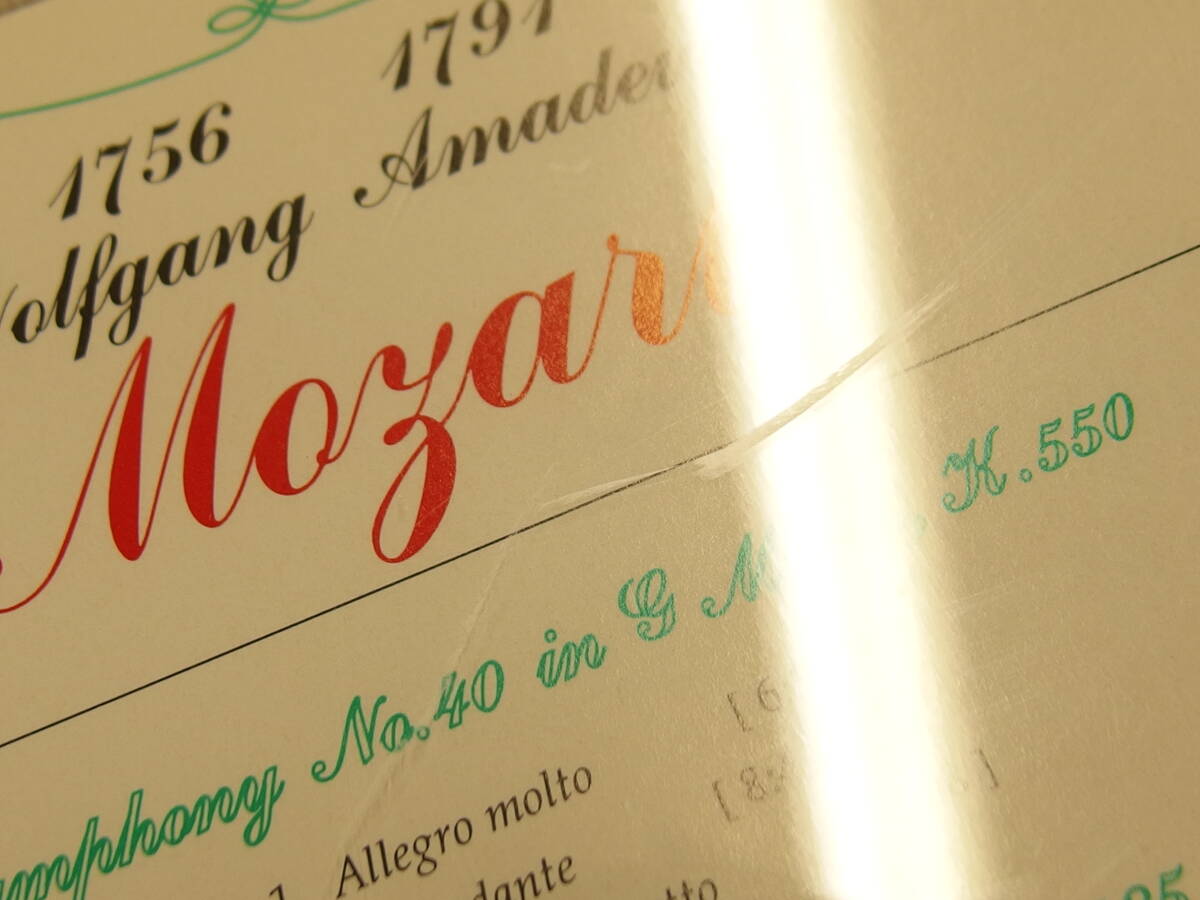 1756 1791
Wolfgang Amadeu
Mozart
Symphony No.40 in G M K.550
[6
1. Allegro molto [8
dante ]
tto